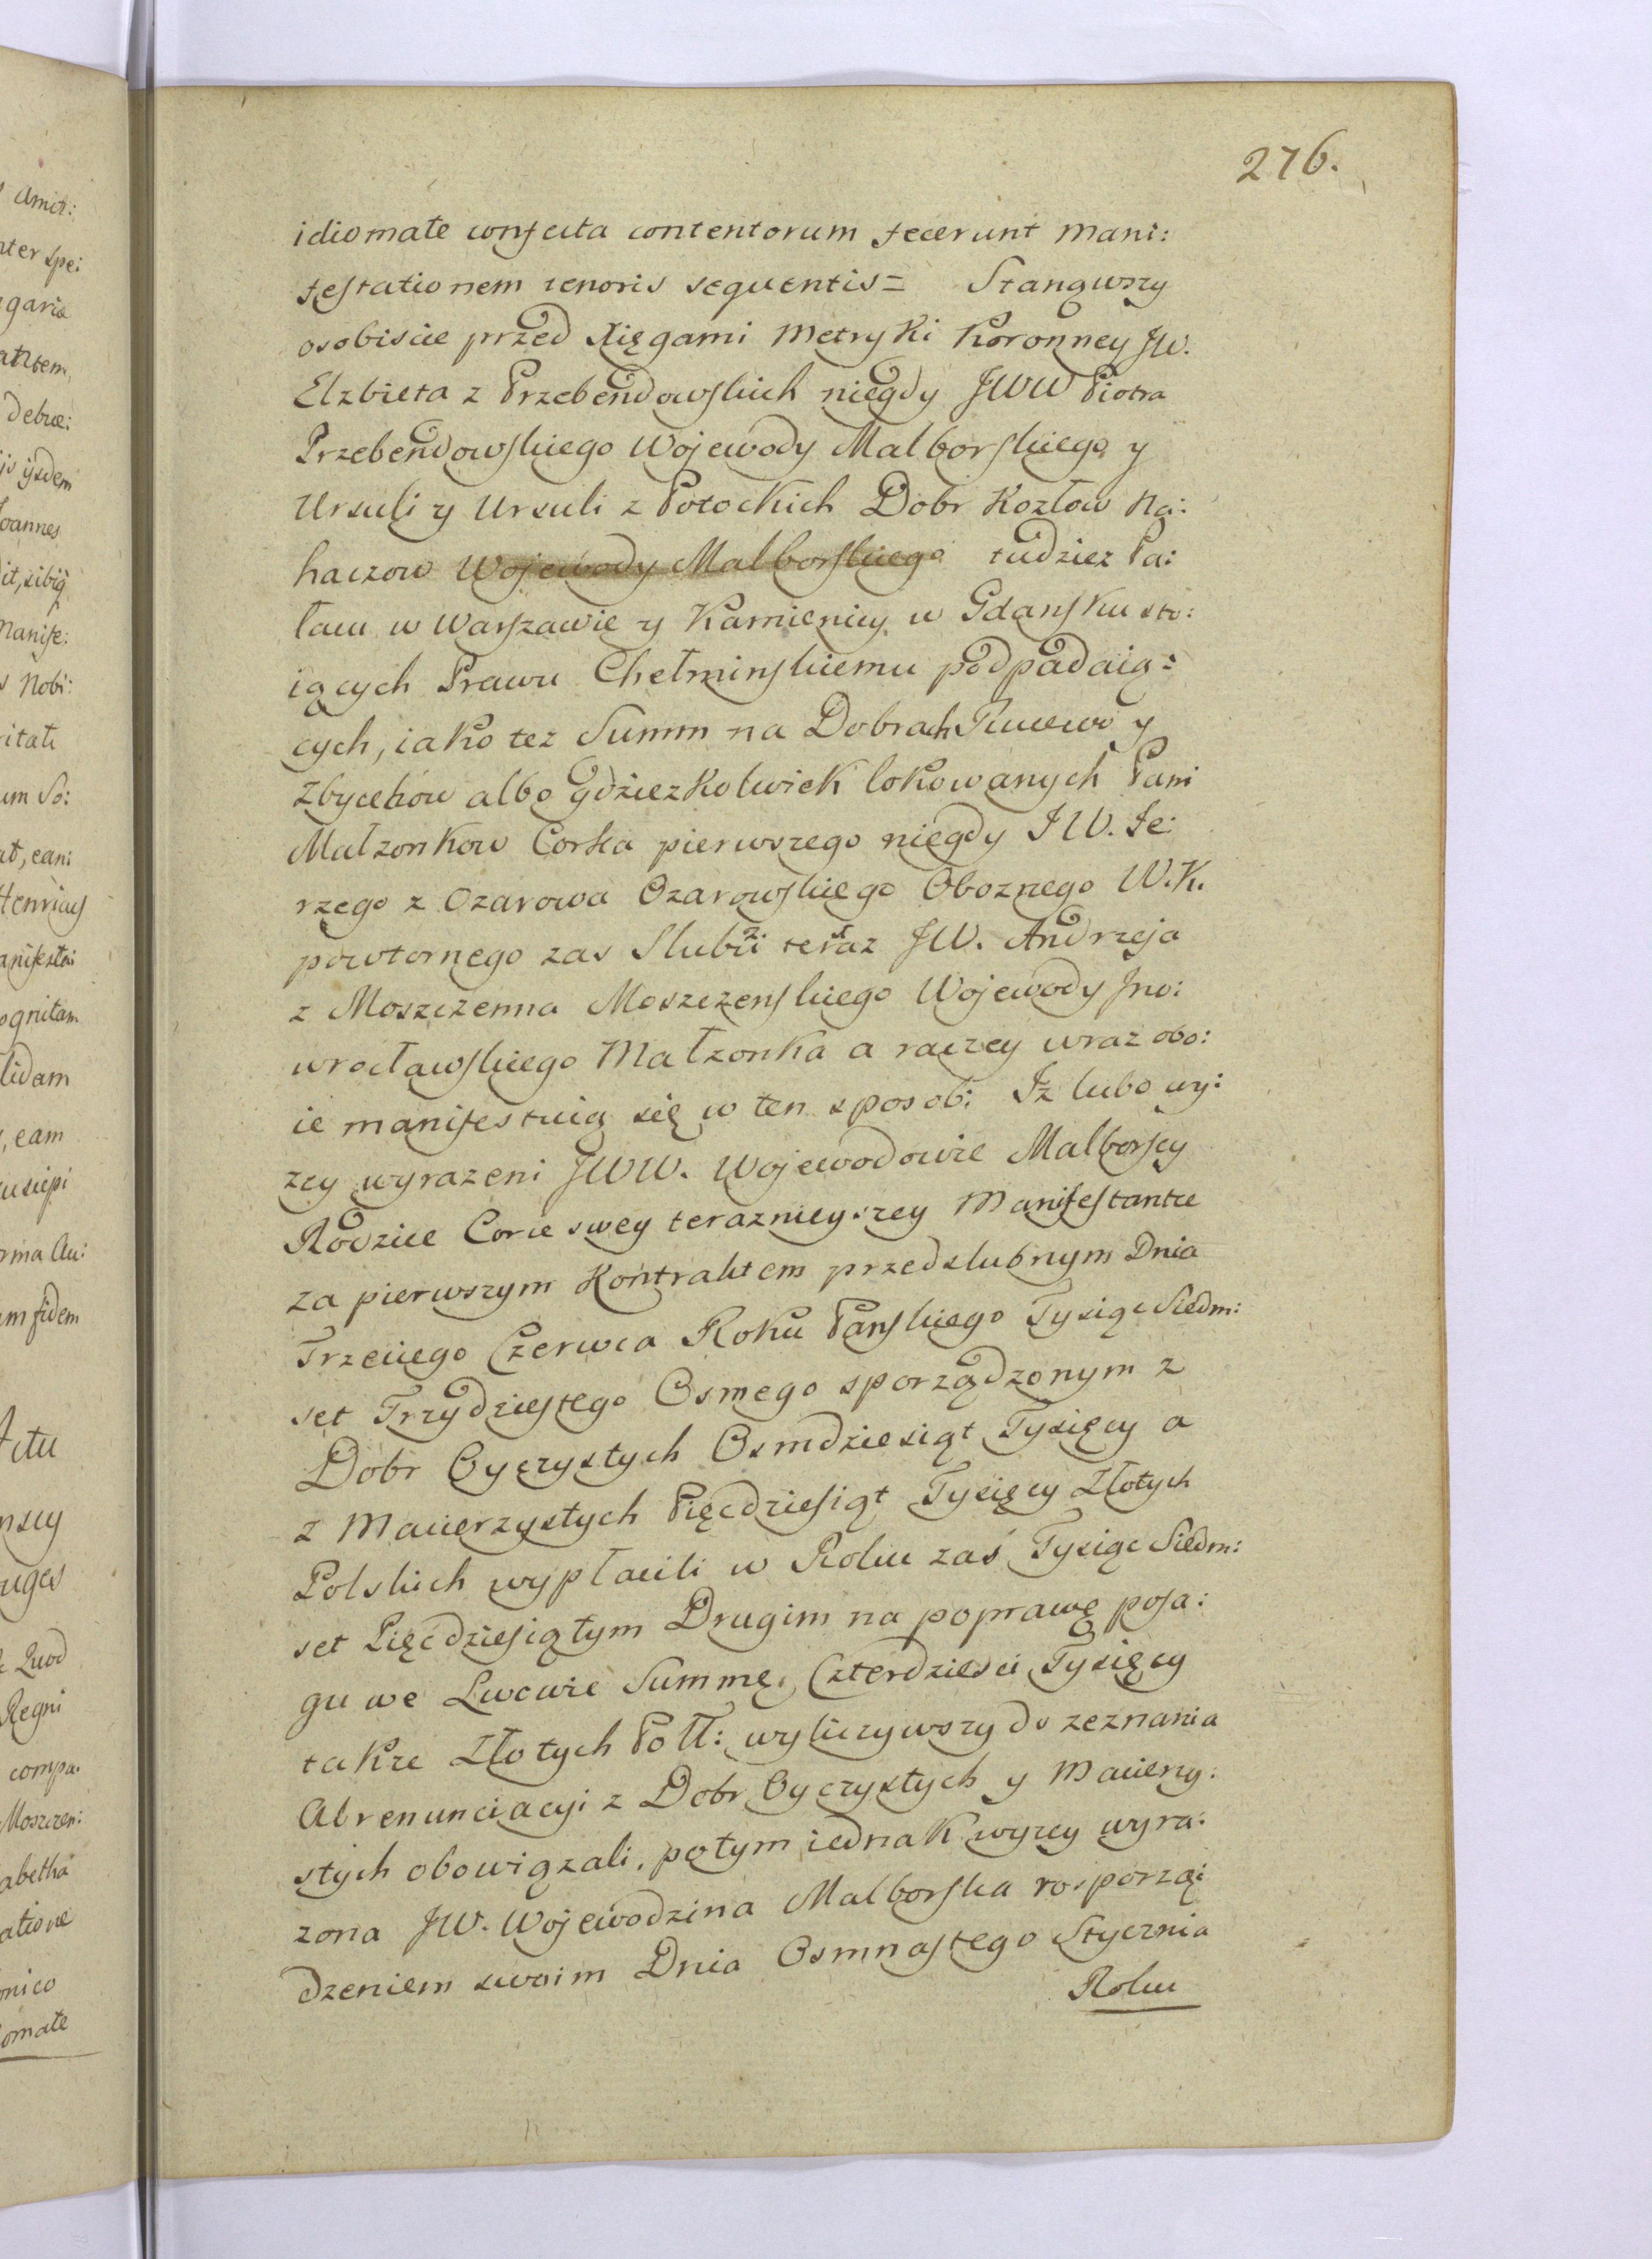 276.
idiomate confecta contentorum fecerunt mani:
festationem tenoris sequentis = Stanąwszy
osobiscie przed Xięgami Metryki Koronney JW.
Elzbieta z Przebendowskich niegdy JWW Piotra
Przebendowskiego Wojewody Malborskiego y
Ursuli y Ursuli z Potockich Dobr Kozłow Na:
haczow Wojewody Malborskiego tudziez Pa:
łacu w Warszawie y Kamienicy w Gdansku sto:
iących Prawu Chełminskiemu podpadaią:
cych, iako tez Summ na Dobrach y
Zbychow albo gdziezkolwiek lokowanych Pani
Małzonkow Corka pierwszego niegdy JW. Je:
rzego z Ozarowa Ozarowskiego Oboznego W.K.
powtornego zas Slubu teraz JW. Andrzeja
z Moszczenna Moszczenskiego Wojewody Jno:
wrocławskiego Małzonka a raczey wraz obo:
ie manifestuią się w ten sposob: Jz lubo wy:
zey wyrazeni JWW. Wojewodowie Malborscy
Rodzice Corce swey teraznieyszey Manifestantce
za pierwszym Kontraktem przedslubnym Dnia
Trzeciego Czerwca Roku Panskiego Tysiąc Siedm:
set Trzydziestego Osmego sporządzonym z
Dobr Oyczystych Osmdziesiąt Tysięcy a
z Macierzystych Pięcdziesiąt Tysięcy Złotych
Polskich wypłacili w Roku zaś Tysiąc Siedm:
set Pięcdziesiątym Drugim na poprawę posa:
gu we Lwowie Summę Czterdziesci Tysięcy
takze Złotych Poll: wyliczywszy do zeznania
Abrenunciacyi z Dobr Oyczystych y Macierzy:
stych obowiązali, potym iednak wyzey wyra:
zona JW. Wojewodzina Malborska rosporzą:
dzeniem swoim Dnia Osmnastego Stycznia
Roku